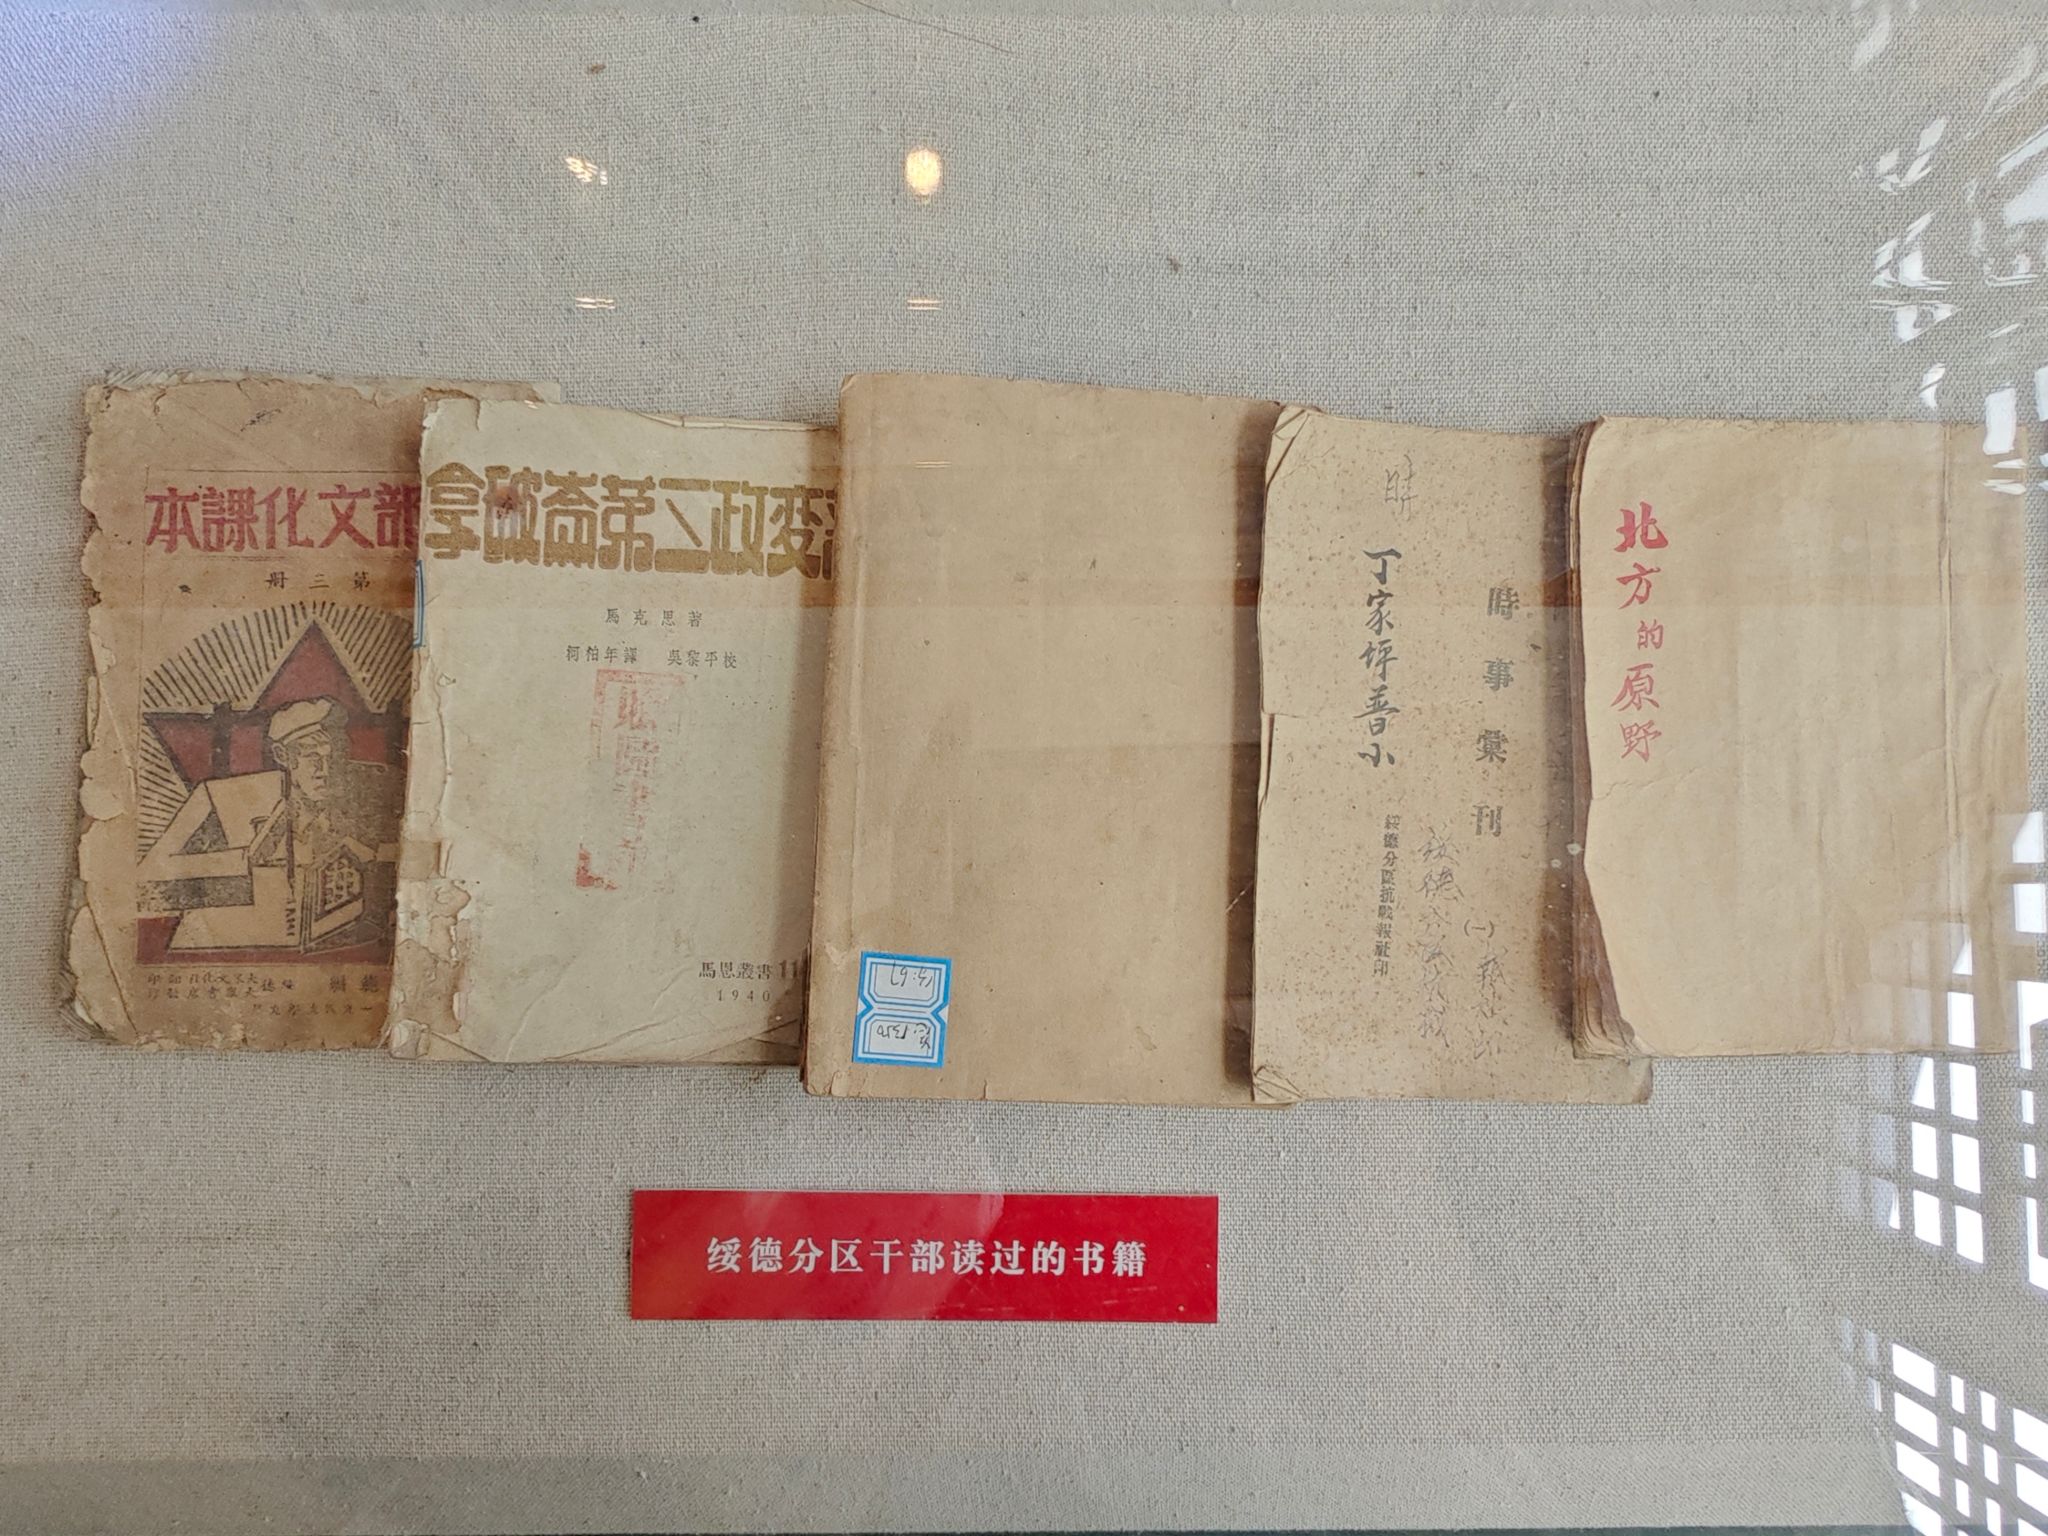 本課化文部
册三第
拿破崙第三政變
馬克思著
柯柏年譯 吳黎平校
馬恩叢書 11
1940
丁家坪普小
時事彙刊
(一)
綏德分區抗戰報社印
綏德分區抗戰
報社印
北方的原野
绥德分区干部读过的书籍